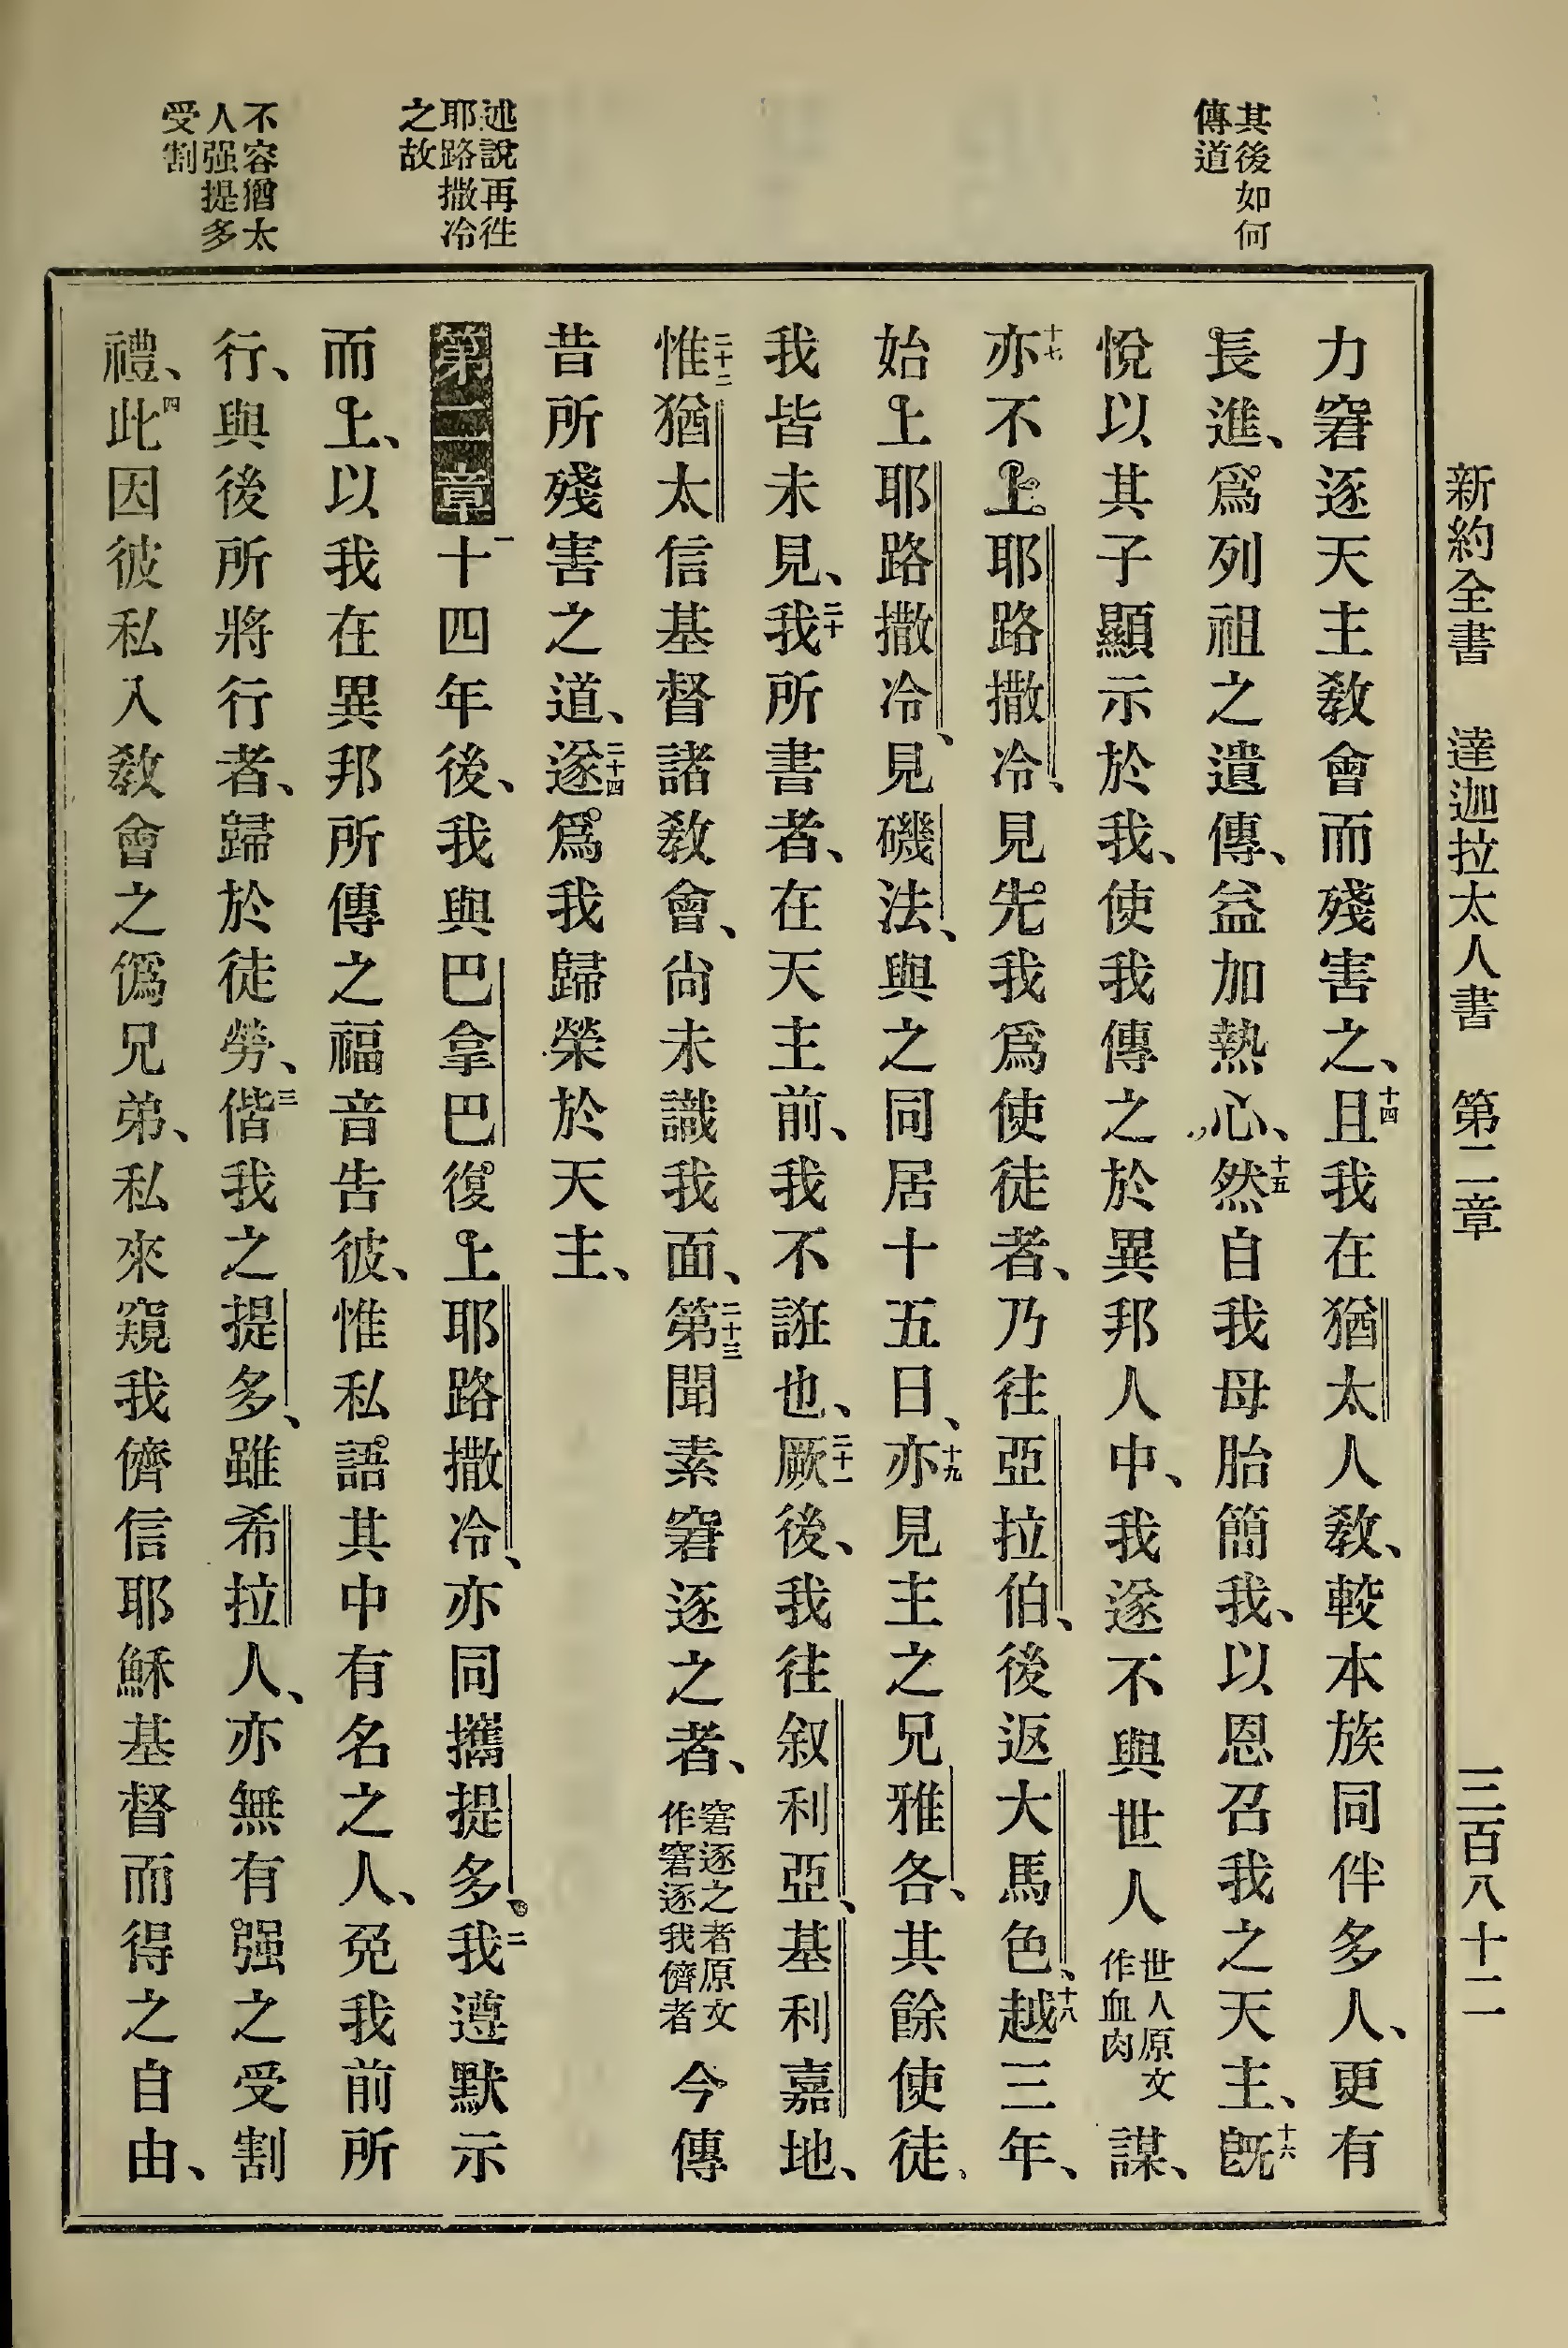 新約全書　達迦拉太人書　第二章　三百八十二
其後如何
傳道
述說再徃
耶路撒冷
之故
不容猶太
人强提多
受割
力窘逐天主敎會而殘害之、十四且我在猶太人敎、較本族同伴多人、更有
長進、爲列祖之遺傳、益加熱心、十五然自我母胎簡我、以恩召我之天主、十六旣
悅以其子顯示於我、使我傳之於異邦人中、我遂不與世人世人原文作血肉謀、
十七亦不上耶路撒冷、見先我爲使徒者、乃往亞拉伯、後返大馬色、十八越三年、
始上耶路撒冷、見磯法、與之同居十五日、十九亦見主之兄雅各、其餘使徒、
我皆未見、二十我所書者、在天主前、我不誑也、二十一厥後、我徃叙利亞、基利嘉地、
二十二惟猶太信基督諸敎會、尙未識我面、二十三第聞素窘逐之者、窘逐之者原文作窘逐我儕者今傳
昔所殘害之道、二十四遂爲我歸榮於天主、
第二章一十四年後、我與巴拿巴復上耶路撒冷、亦同攜提多、二我遵默示
而上、以我在異邦所傳之福音告彼、惟私語其中有名之人、免我前所
行、與後所將行者、歸於徒勞、三偕我之提多、雖希拉人、亦無有强之受割
禮、四此因彼私入敎會之僞兄弟、私來窺我儕信耶穌基督而得之自由、